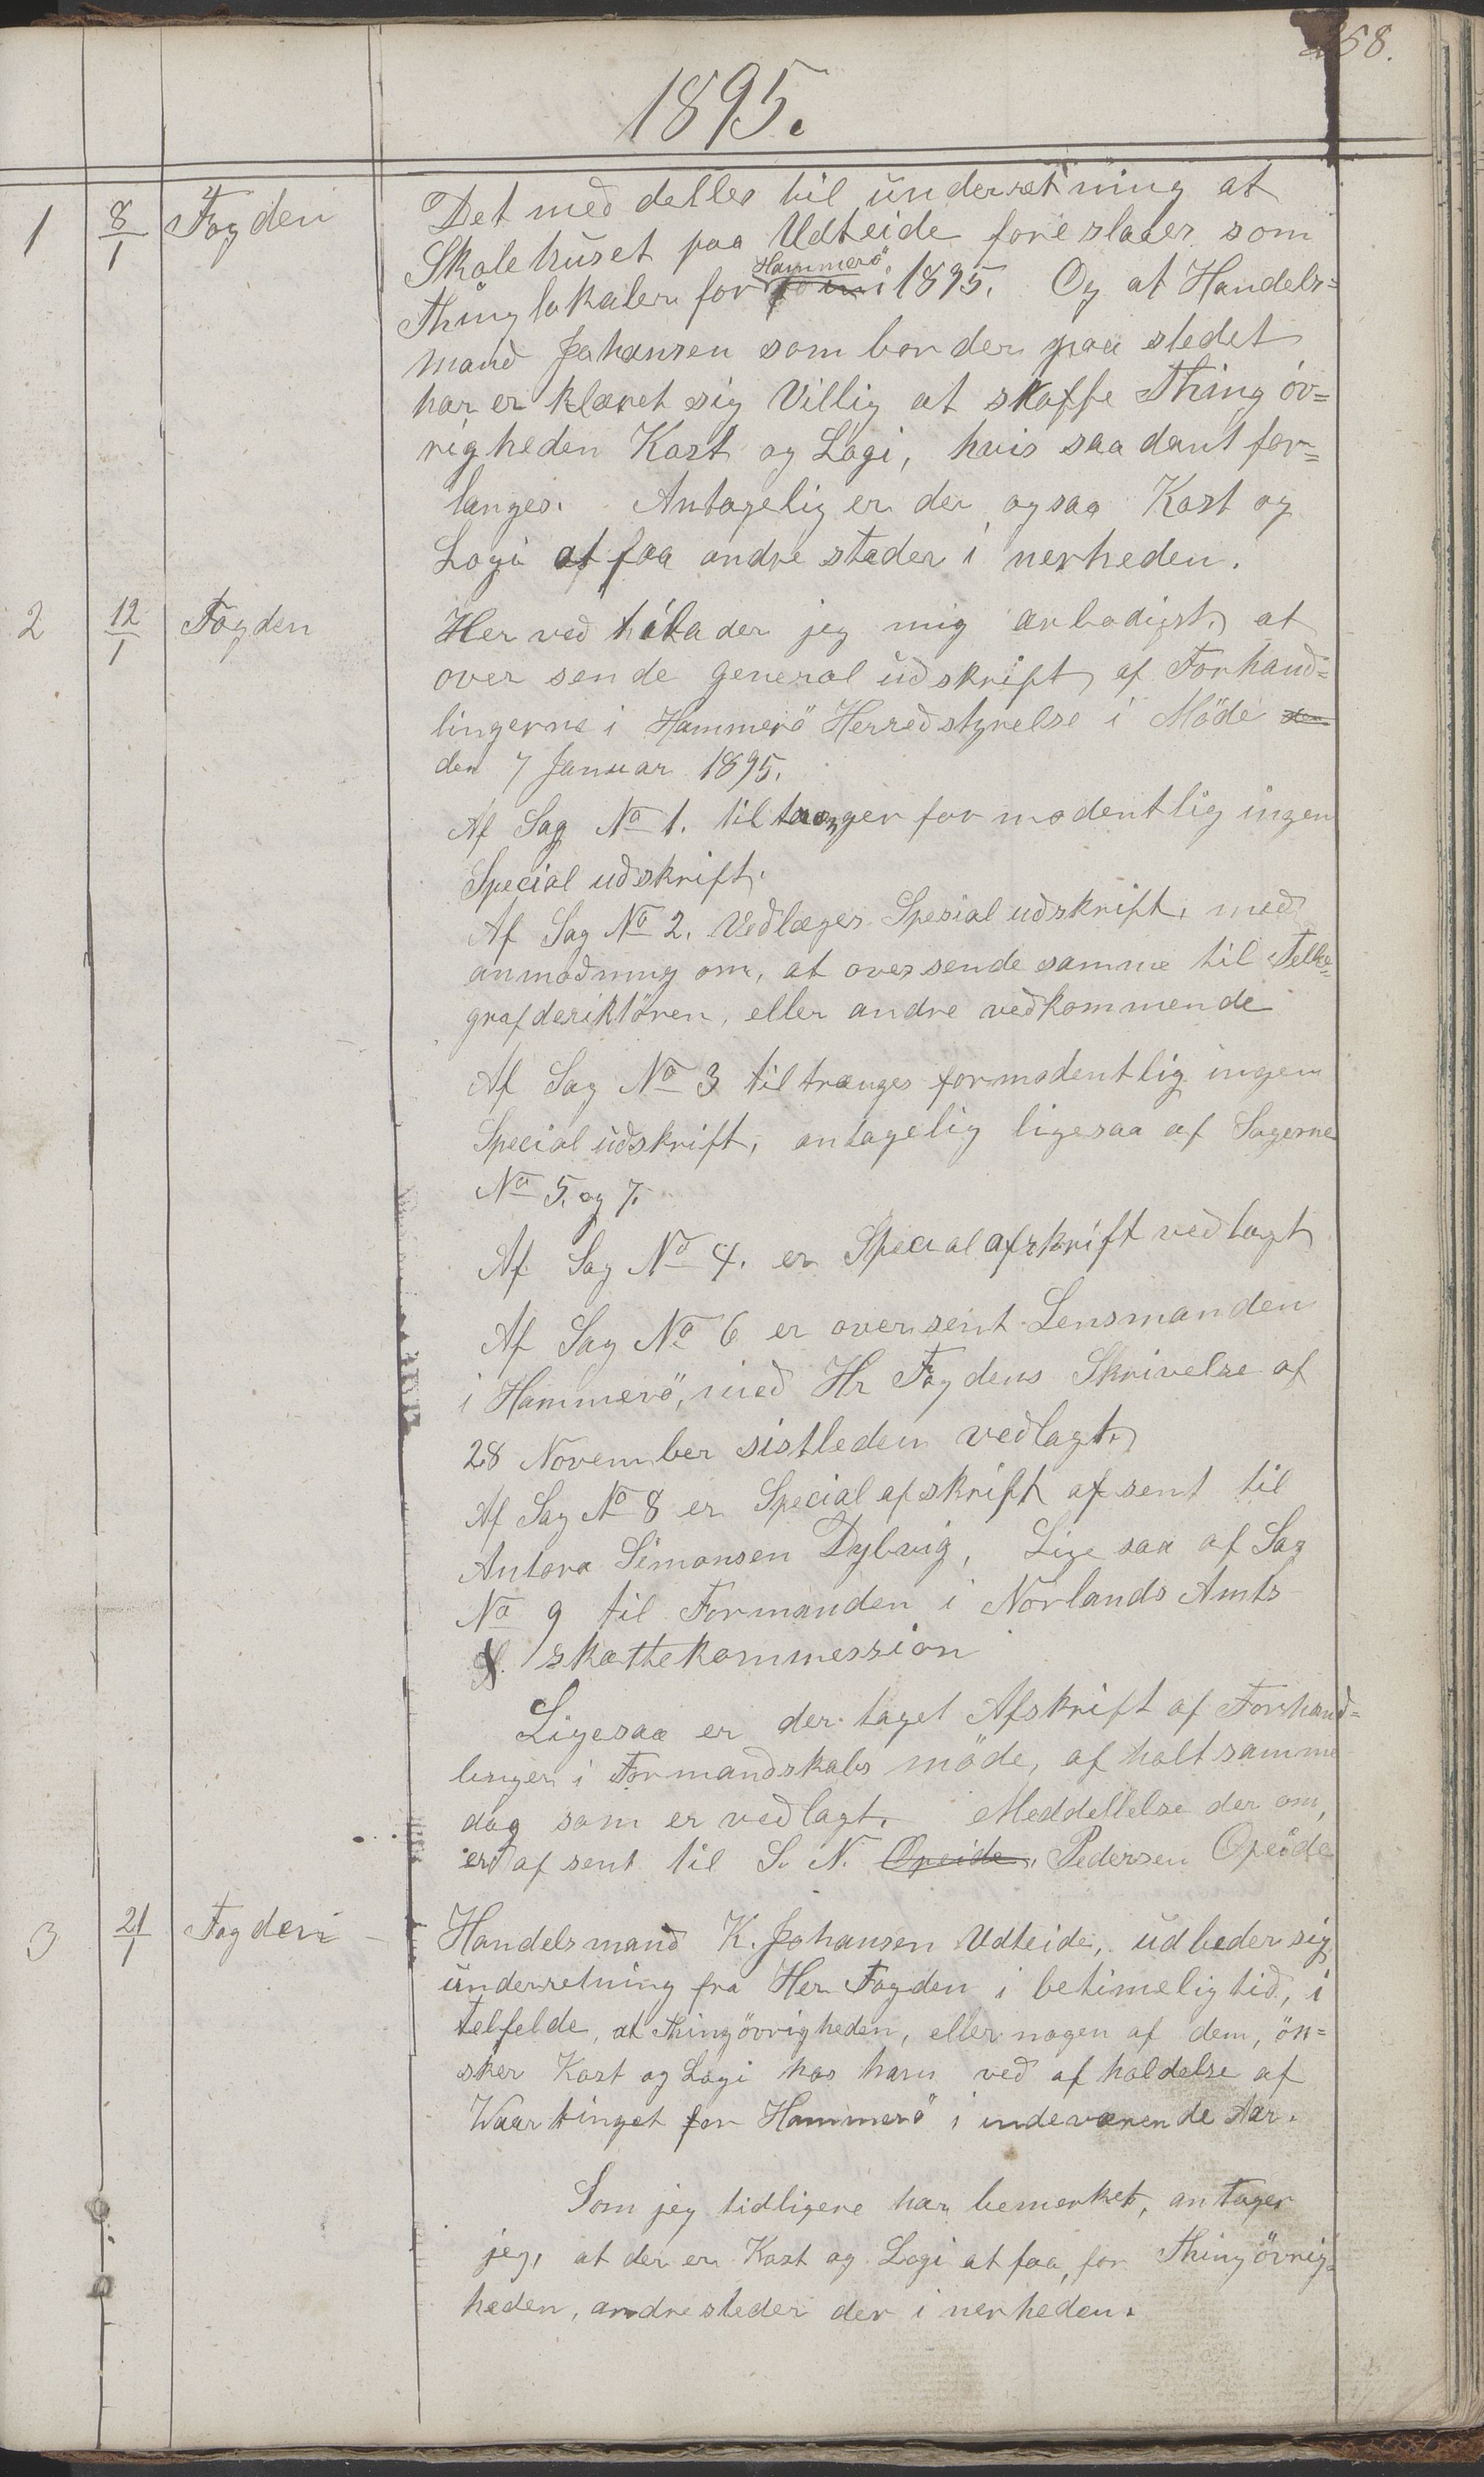 258.
1895.
1 8/1 Fogden Det med delles til underretning at
Skolehuset paa Udteide foreslaaes som
Thinglokaler for Hammerö 1895. Og at Handels=
mand Johansen som bor der paa stedet
har er klæret sig Villig at skaffe Thing öv=
righeden Kost og Logi, hvis saa dant for=
langes. Antagelig er der ogsaa Kost og
Logi at faa andre stader i nerheden.
2 12/1 Fogden Her ved tilader jeg mig ærbødigst, at
over sende general udskrift af Forhand=
lingerne i Hammerö Herredstyrelse i Möde den
den 7 Januar 1895.
Af Sag No 1. til trænger formodentlig ingen
Special udskrift.
Af Sag No 2. Vedlæges Spesial udskrift, med
anmodning om, at oversende samme til Telle=
grafderiktören, eller andre vedkommende
Af Sag No 3 tiltrænges formodentlig ingen
Special udskrift, antagelig ligesaa af Sagerne
No 5. og 7.
Af Sag No 4. er Special afskrift vedlagt
Af Sag No 6 er oversent Lensmanden
i Hammerö, med Hr Fogdens Skrivelse af
28 November sistleden vedlagt.
Af Sag No 8 er Special afskrift afsent til
Antora Simonsen Dybvig, Lige saa af Sag
No 9 til Formanden i Norlands Amts
skattekommession
Ligesaa er der taget Afskrift af Forhand=
linger i Formandskabs möde, af holt samme
dag som er vedlagt. Meddellelse der om,
er af sent til S. N. Opeide. Pedersen Opeide
3 21/1 Fogden Handelsmand K. Johansen Udteide, udbeder sig
underretning fra Her Fogden i betimelig tid, i
telfelde, at Thingövrigheden, eller nogen af dem, ön=
sker Kost og Logi hos ham ved af holdelse af
Waartinget for Hammerö i indeværende Aar.
Som jeg tidligere har bemerket, antager
jeg, at der er Kost og Logi at faa, for Thingövrig=
heden, andre steder der i nerheden.